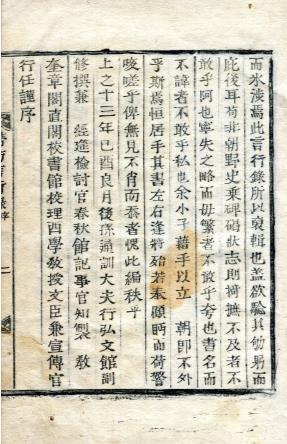 而氷涉焉此言行錄所以裒輯也盖欲驗其劬躬而
庇後耳苟非朝野史乗碑碣狀志則掎摭不及者不
敢乎阿也寧失之略而毋繁者不敢乎夸也書名而
不諱者不敢乎私也余小子藉手以立 朝卽不外
乎斯焉恒居手其書左右逢將殆若承顧眄而荷警
咳嗟乎俾無見不肖而忝者愧此編秩乎
上之十三年己酉良月後孫通訓大夫行弘文館副
修撰兼 經筵檢討官春秋館記事官知製 教
奎章閣直閣校書館校理西學敎授文臣兼宣傳官
行任謹序
序